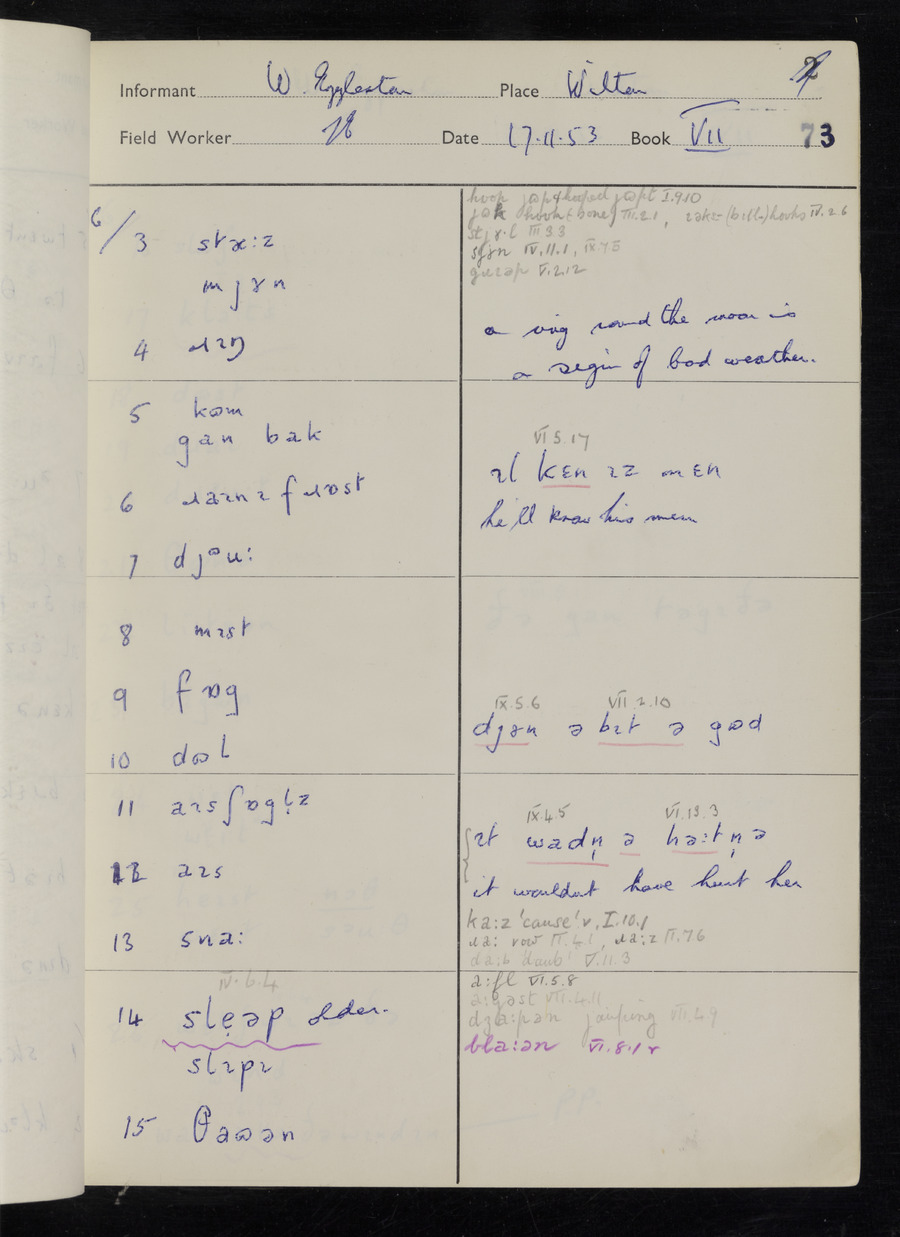 Informant W. Eggleston Place Wilton 2
Field Worker Date 17.11.53 Book VII 73
6/3 stæ:z
mjɤn
4 ɹɪŋ
hooped I.9.10
III.2.1, hooks IV.2.6
III.3.3
IV.11.1, IX.7.5
V.2.12
a ring round the moon is
a sign of bad weather.
5 kɷm
gan bak
6 ɹaɪnɪ fɹɒst
7 djəu:
VI.5.17
ɪl kɛn ɪz mɛn
he'll know his men
8 mɪst
9 fɒg
10 dɷl
IX.5.6 VII.2.10
djɤn ə bɪt ə gɷd
11 aɪsʃɒgl̩z
12 aɪs
13 sna:
IX.4.5 VI.13.3
ɪt wadn̩ ə hə:tn̩ ə
it wouldnt have hurt her
ka:z 'cause' v, I.10.1
ɹa: row II.4.1, ɹa:z II.7.6
V.11.3
IV.6.4
14 slẹəp older.
slɪpɪ
15 θaɷən
a:fl VI.5.8
VIII.4.11
VIII.4.9
bla:ən VI.8.1 v